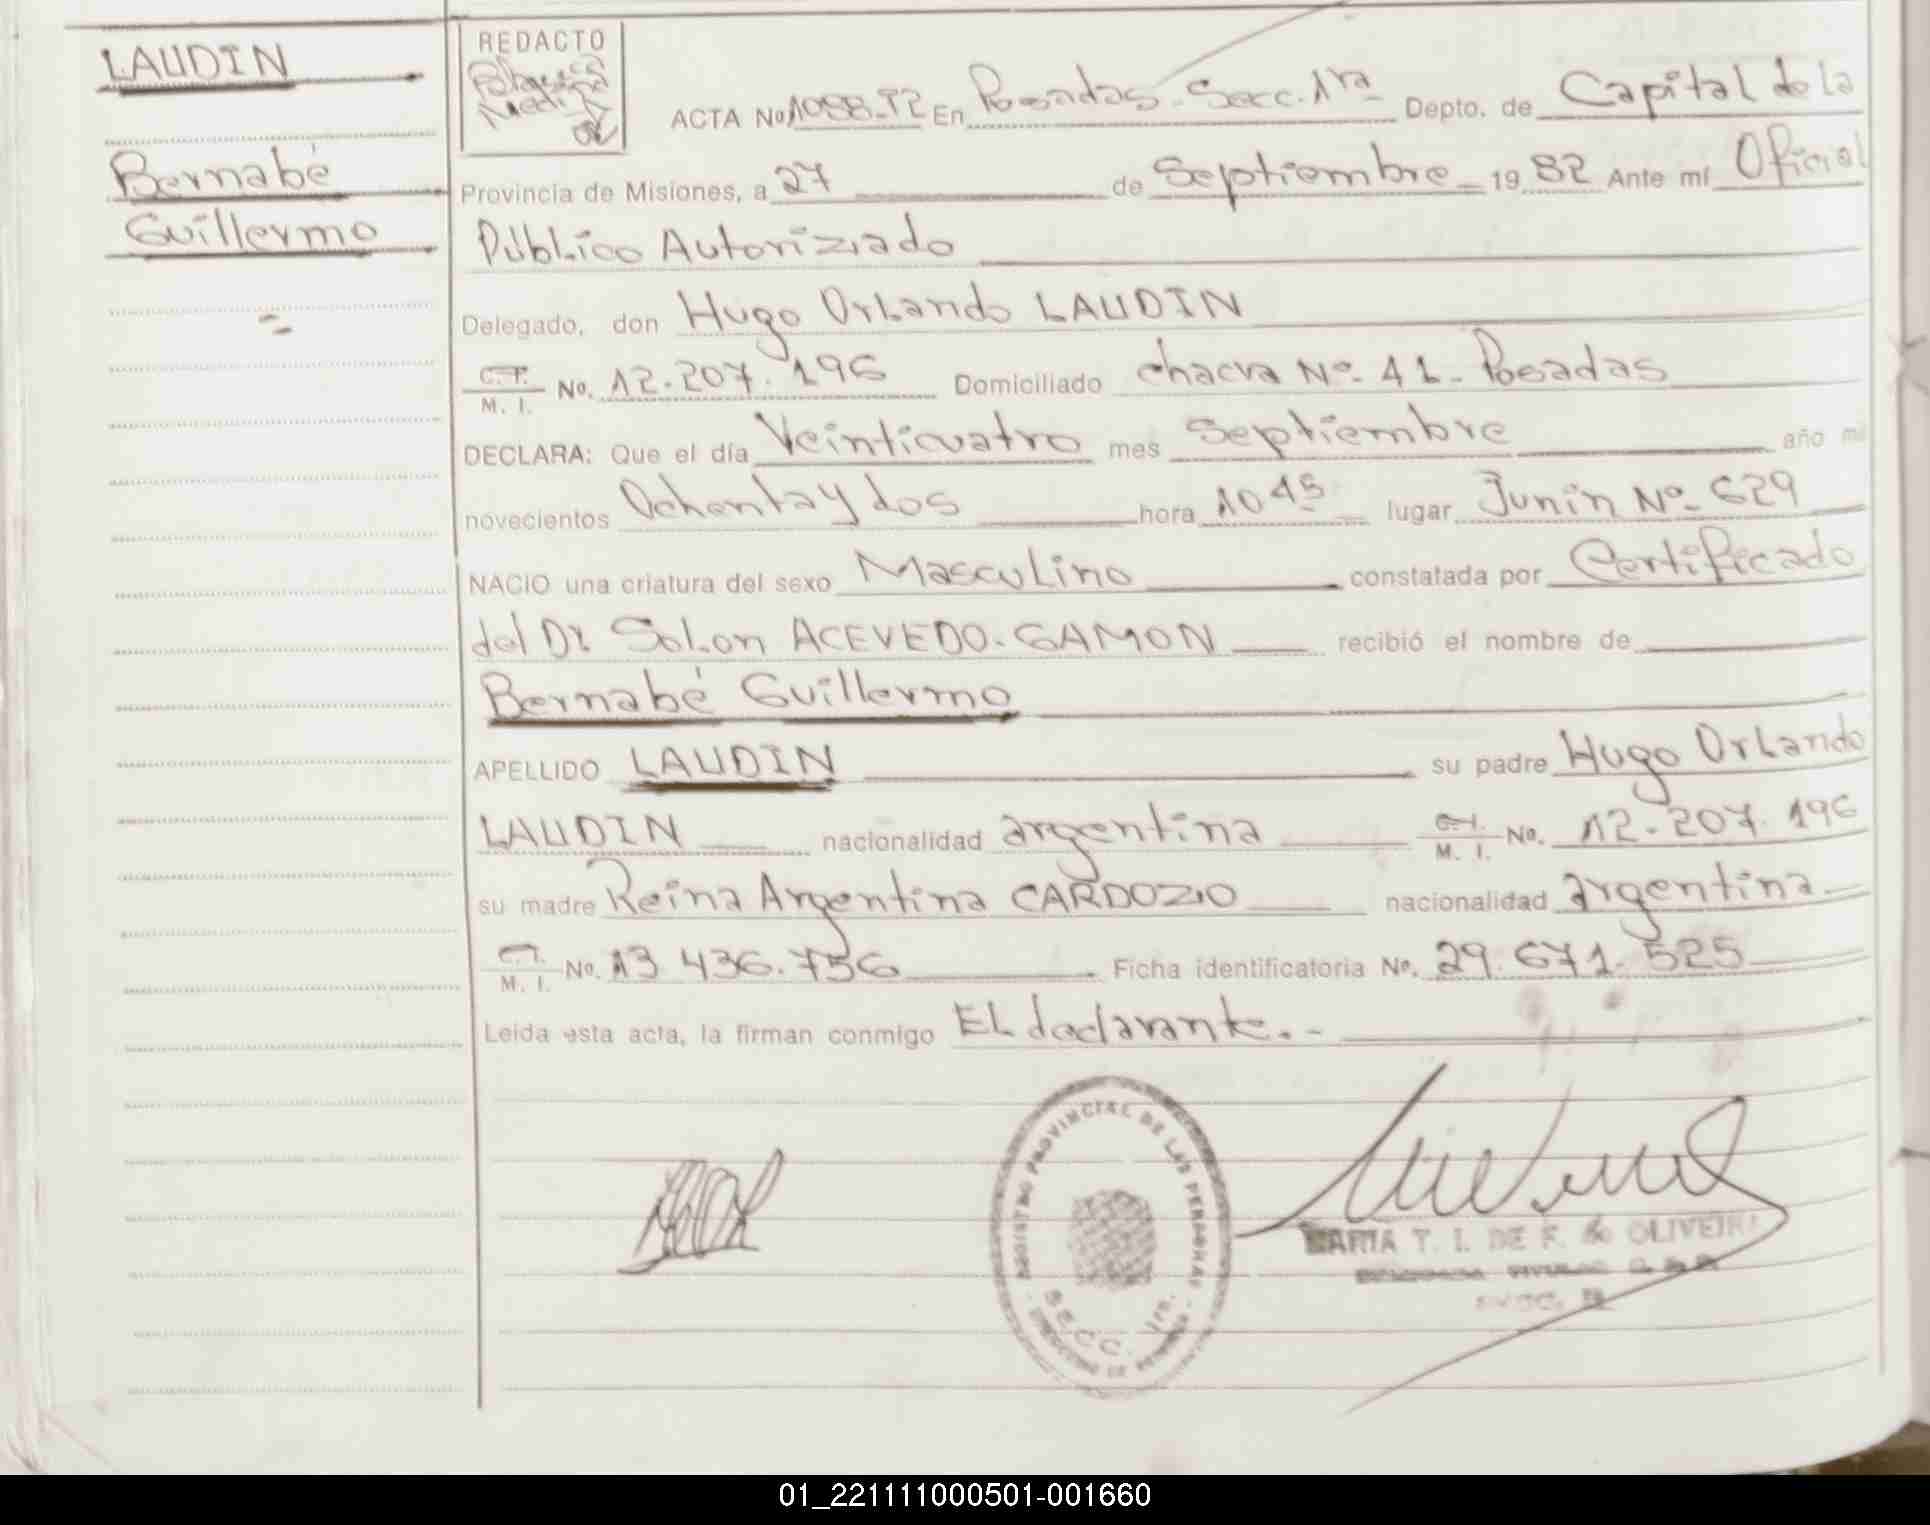 LAUDIN
Bernabé
Guillermo
REDACTO
ACTA No 1098-T2 En Posadas. Secc. 1ra Depto. de Capital de la
Provincia de Misiones, a 27 de Septiembre 19 82 Ante mí Oficial
Público Autorizado
Delegado, don Hugo Orlando LAUDIN
C.I. M. I. No. 12.207.196 Domiciliado chacra Nº 41- Posadas
DECLARA: Que el día Veinticuatro mes Septiembre año mil
novecientos Ochenta y dos hora 10 45 lugar Junín Nº 629
NACIO una criatura del sexo Masculino constatada por Certificado
del Dr Solon ACEVEDO-GAMON recibió el nombre de
Bernabé Guillermo
APELLIDO LAUDIN su padre Hugo Orlando
LAUDIN nacionalidad argentina C.I. M. I. No. 12.207.196
su madre Reina Argentina CARDOZO nacionalidad argentina
C.I. M. I. No. 13 436.756 Ficha identificatoria No. 29.671.525
Leída esta acta, la firman conmigo El declarante.-
REGISTRO PROVINCIAL DE LAS PERSONAS
SECC. 1ra.
MARIA T. I. DE F. de OLIVEIRA
01_221111000501-001660